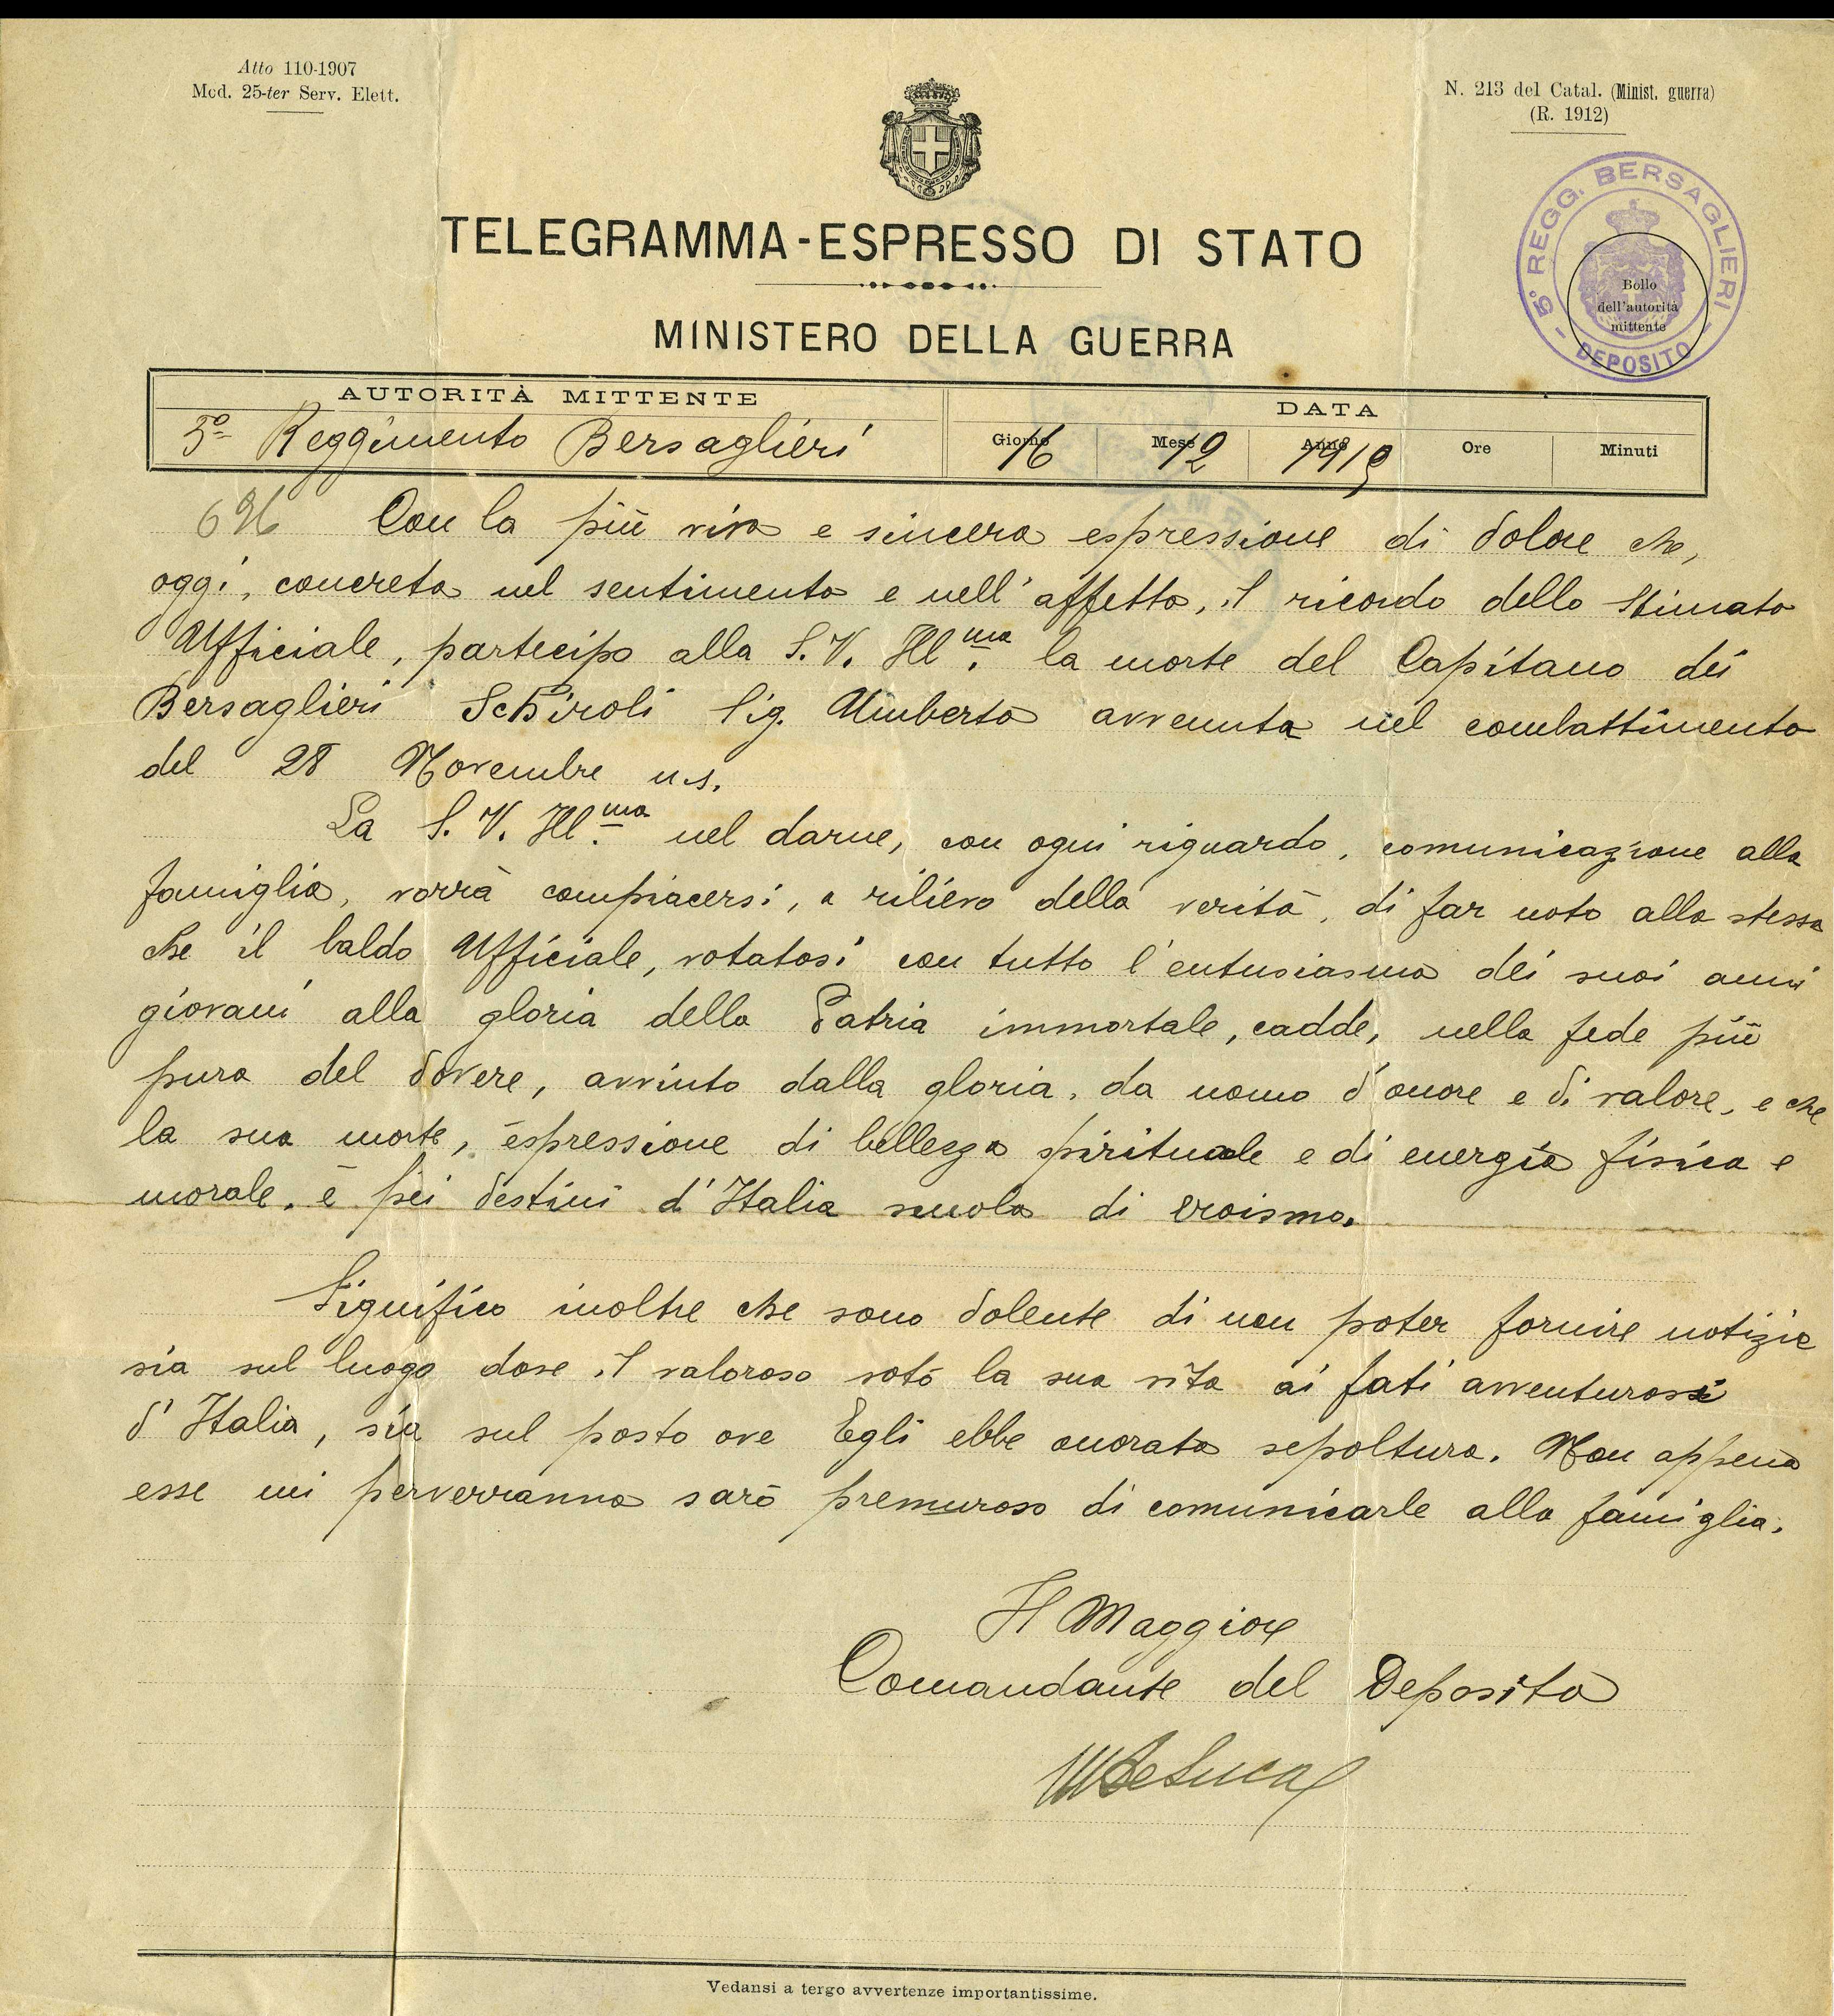 Atto 110-1907
Mod. 25-ter Serv. Elett.
N. 213 del Catal. (Minist. guerra)
(R. 1912)
5° REGG. BERSAGLIERI
- DEPOSITO -
Bollo
dell'autorità
mittente
TELEGRAMMA-ESPRESSO DI STATO
MINISTERO DELLA GUERRA
AUTORITÀ MITTENTE
5° Reggimento Bersaglieri
DATA
Giorno 16 Mese 12 Anno 1915 Ore Minuti
Con la più viva e sincera espressione di dolore che,
oggi, concreta nel sentimento e nell'affetto, il ricordo dello stimato
Ufficiale, partecipo alla S.V. Ill.ma la morte del Capitano dei
Bersaglieri Schiroli Sig. Umberto avvenuta nel combattimento
del 28 Novembre u.s.
La S.V. Ill.ma nel darne, con ogni riguardo, comunicazione alla
famiglia, vorrà compiacersi, a rilievo della verità, di far noto alla stessa
che il baldo Ufficiale, votatosi con tutto l'entusiasmo dei suoi anni
giovani alla gloria della Patria immortale, cadde, nella fede più
pura del dovere, avvinto dalla gloria, da uomo d'onore e di valore, e che
la sua morte, espressione di bellezza spirituale e di energia fisica e
morale, è pei destini d'Italia scuola di eroismo.
Significo inoltre che sono dolente di non poter fornire notizie
sia sul luogo dove il valoroso votò la sua vita ai fati avventurosi
d'Italia, sia sul posto ove Egli ebbe onorata sepoltura. Non appena
esse mi perverranno sarò premuroso di comunicarle alla famiglia.
Il Maggiore
Comandante del Deposito
De Luca
Vedansi a tergo avvertenze importantissime.